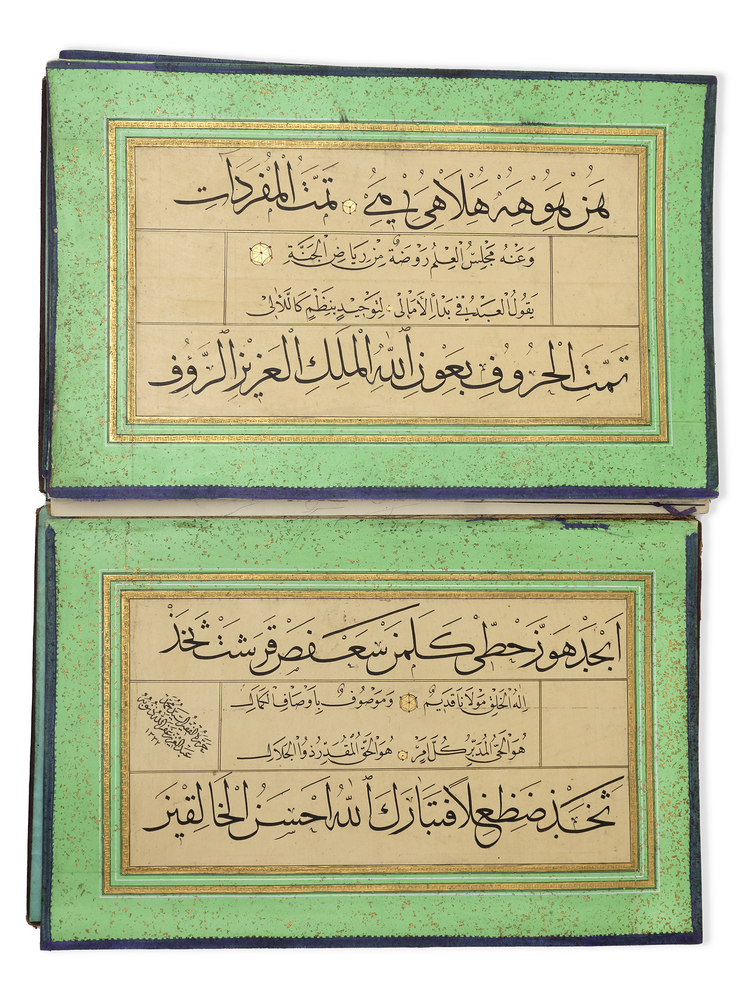 هن هو هه هلا هي ي يے تمت المفردات
وعنه مجلس العلم روضة من رياض الجنة
يقول العبد في بدأ الأمالي لتوحيد بنظم كاللآلي
تمت الحروف بعون الله الملك العزيز الرؤف
ابجد هوز حطي كلمن سعفص قرشت ثخذ
اله الخلق مولانا قديم وموصوف باوصاف الكمال
هو الحي المدبر كل امر هو الحق المقدر ذو الجلال
ثخذ ضظغلا فتبارك الله احسن الخالقين